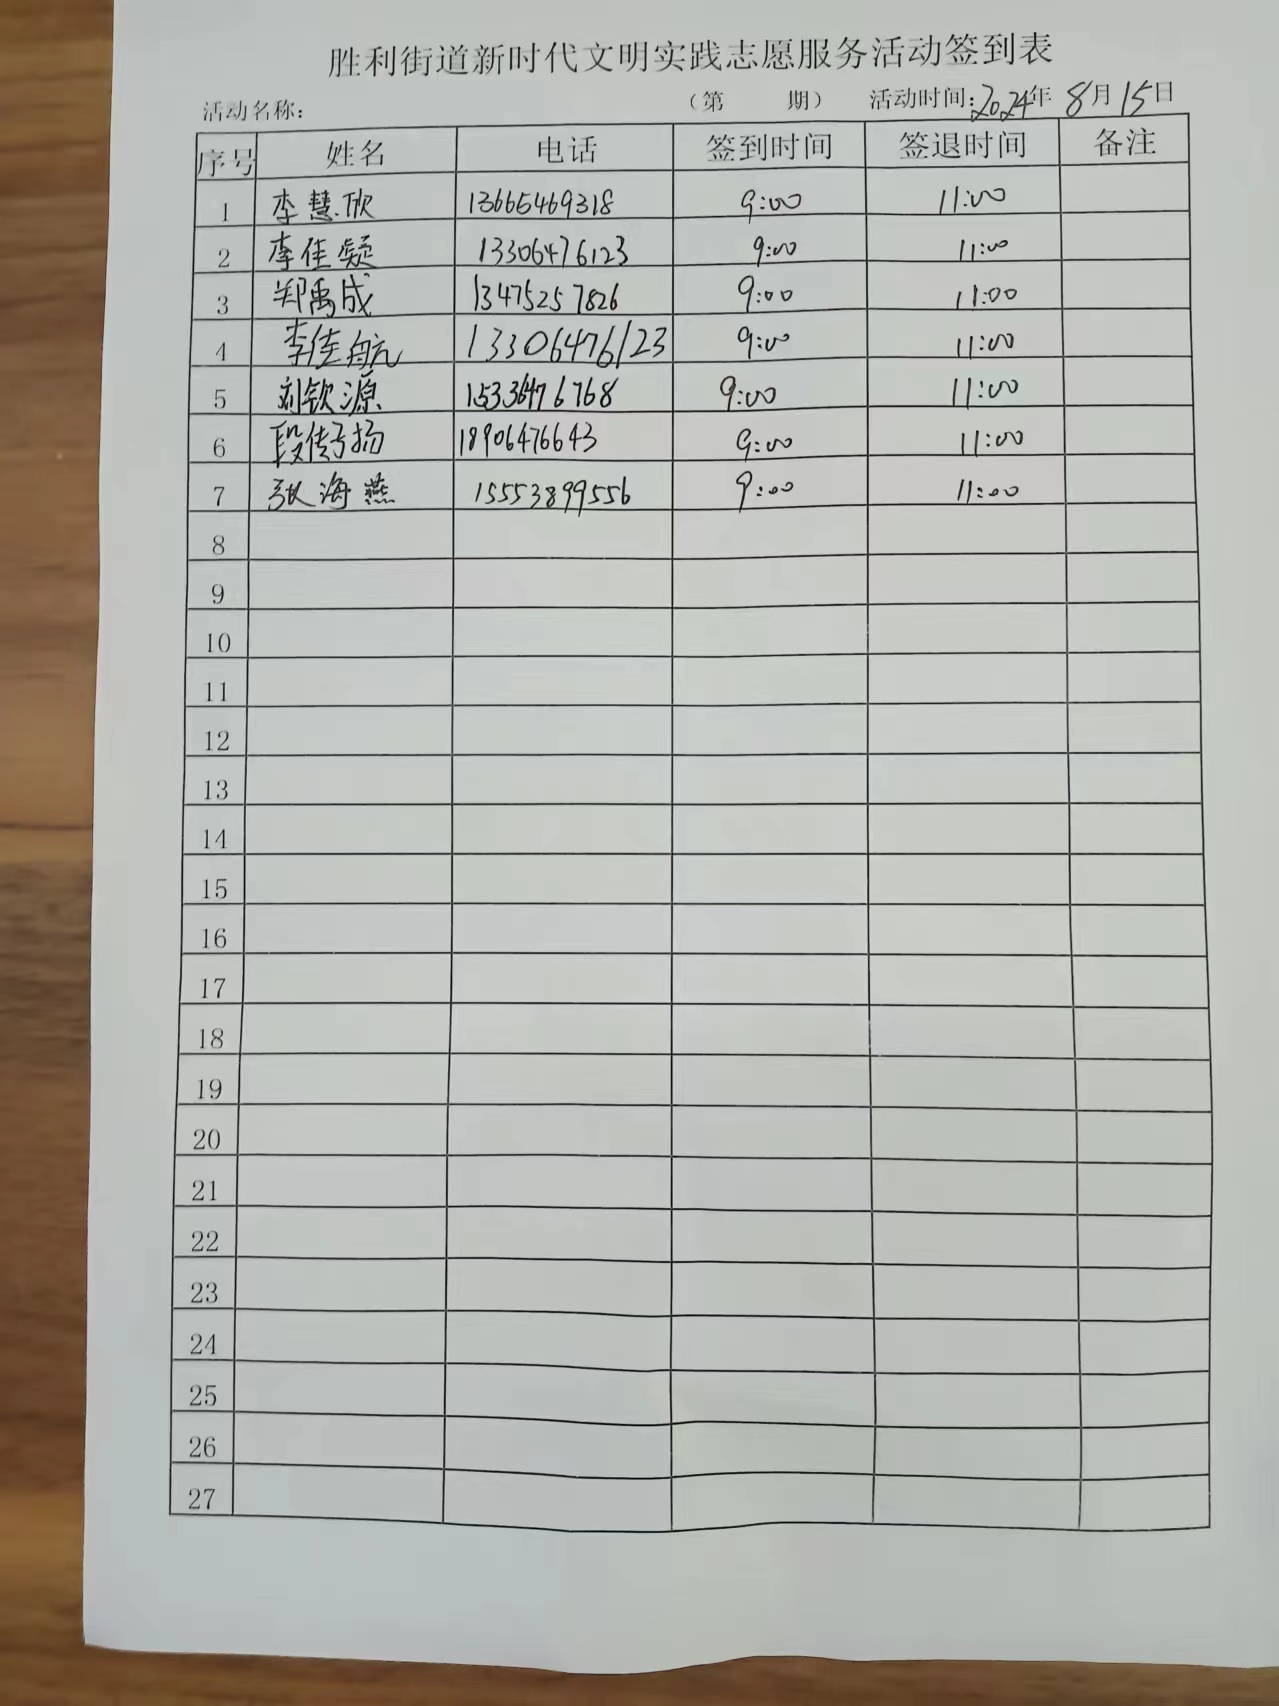 胜利街道新时代文明实践志愿服务活动签到表
活动名称: （第 期） 活动时间:2024年 8月15日
序号 姓名 电话 签到时间 签退时间 备注
1 李慧欣 13665469318 9:00 11:00
2 李佳凝 13306476123 9:00 11:00
3 郑禹成 13475257826 9:00 11:00
4 李佳航 13306476123 9:00 11:00
5 刘钦源 15336476768 9:00 11:00
6 段传扬 18906476643 9:00 11:00
7 张海燕 15553899556 9:00 11:00
8
9
10
11
12
13
14
15
16
17
18
19
20
21
22
23
24
25
26
27